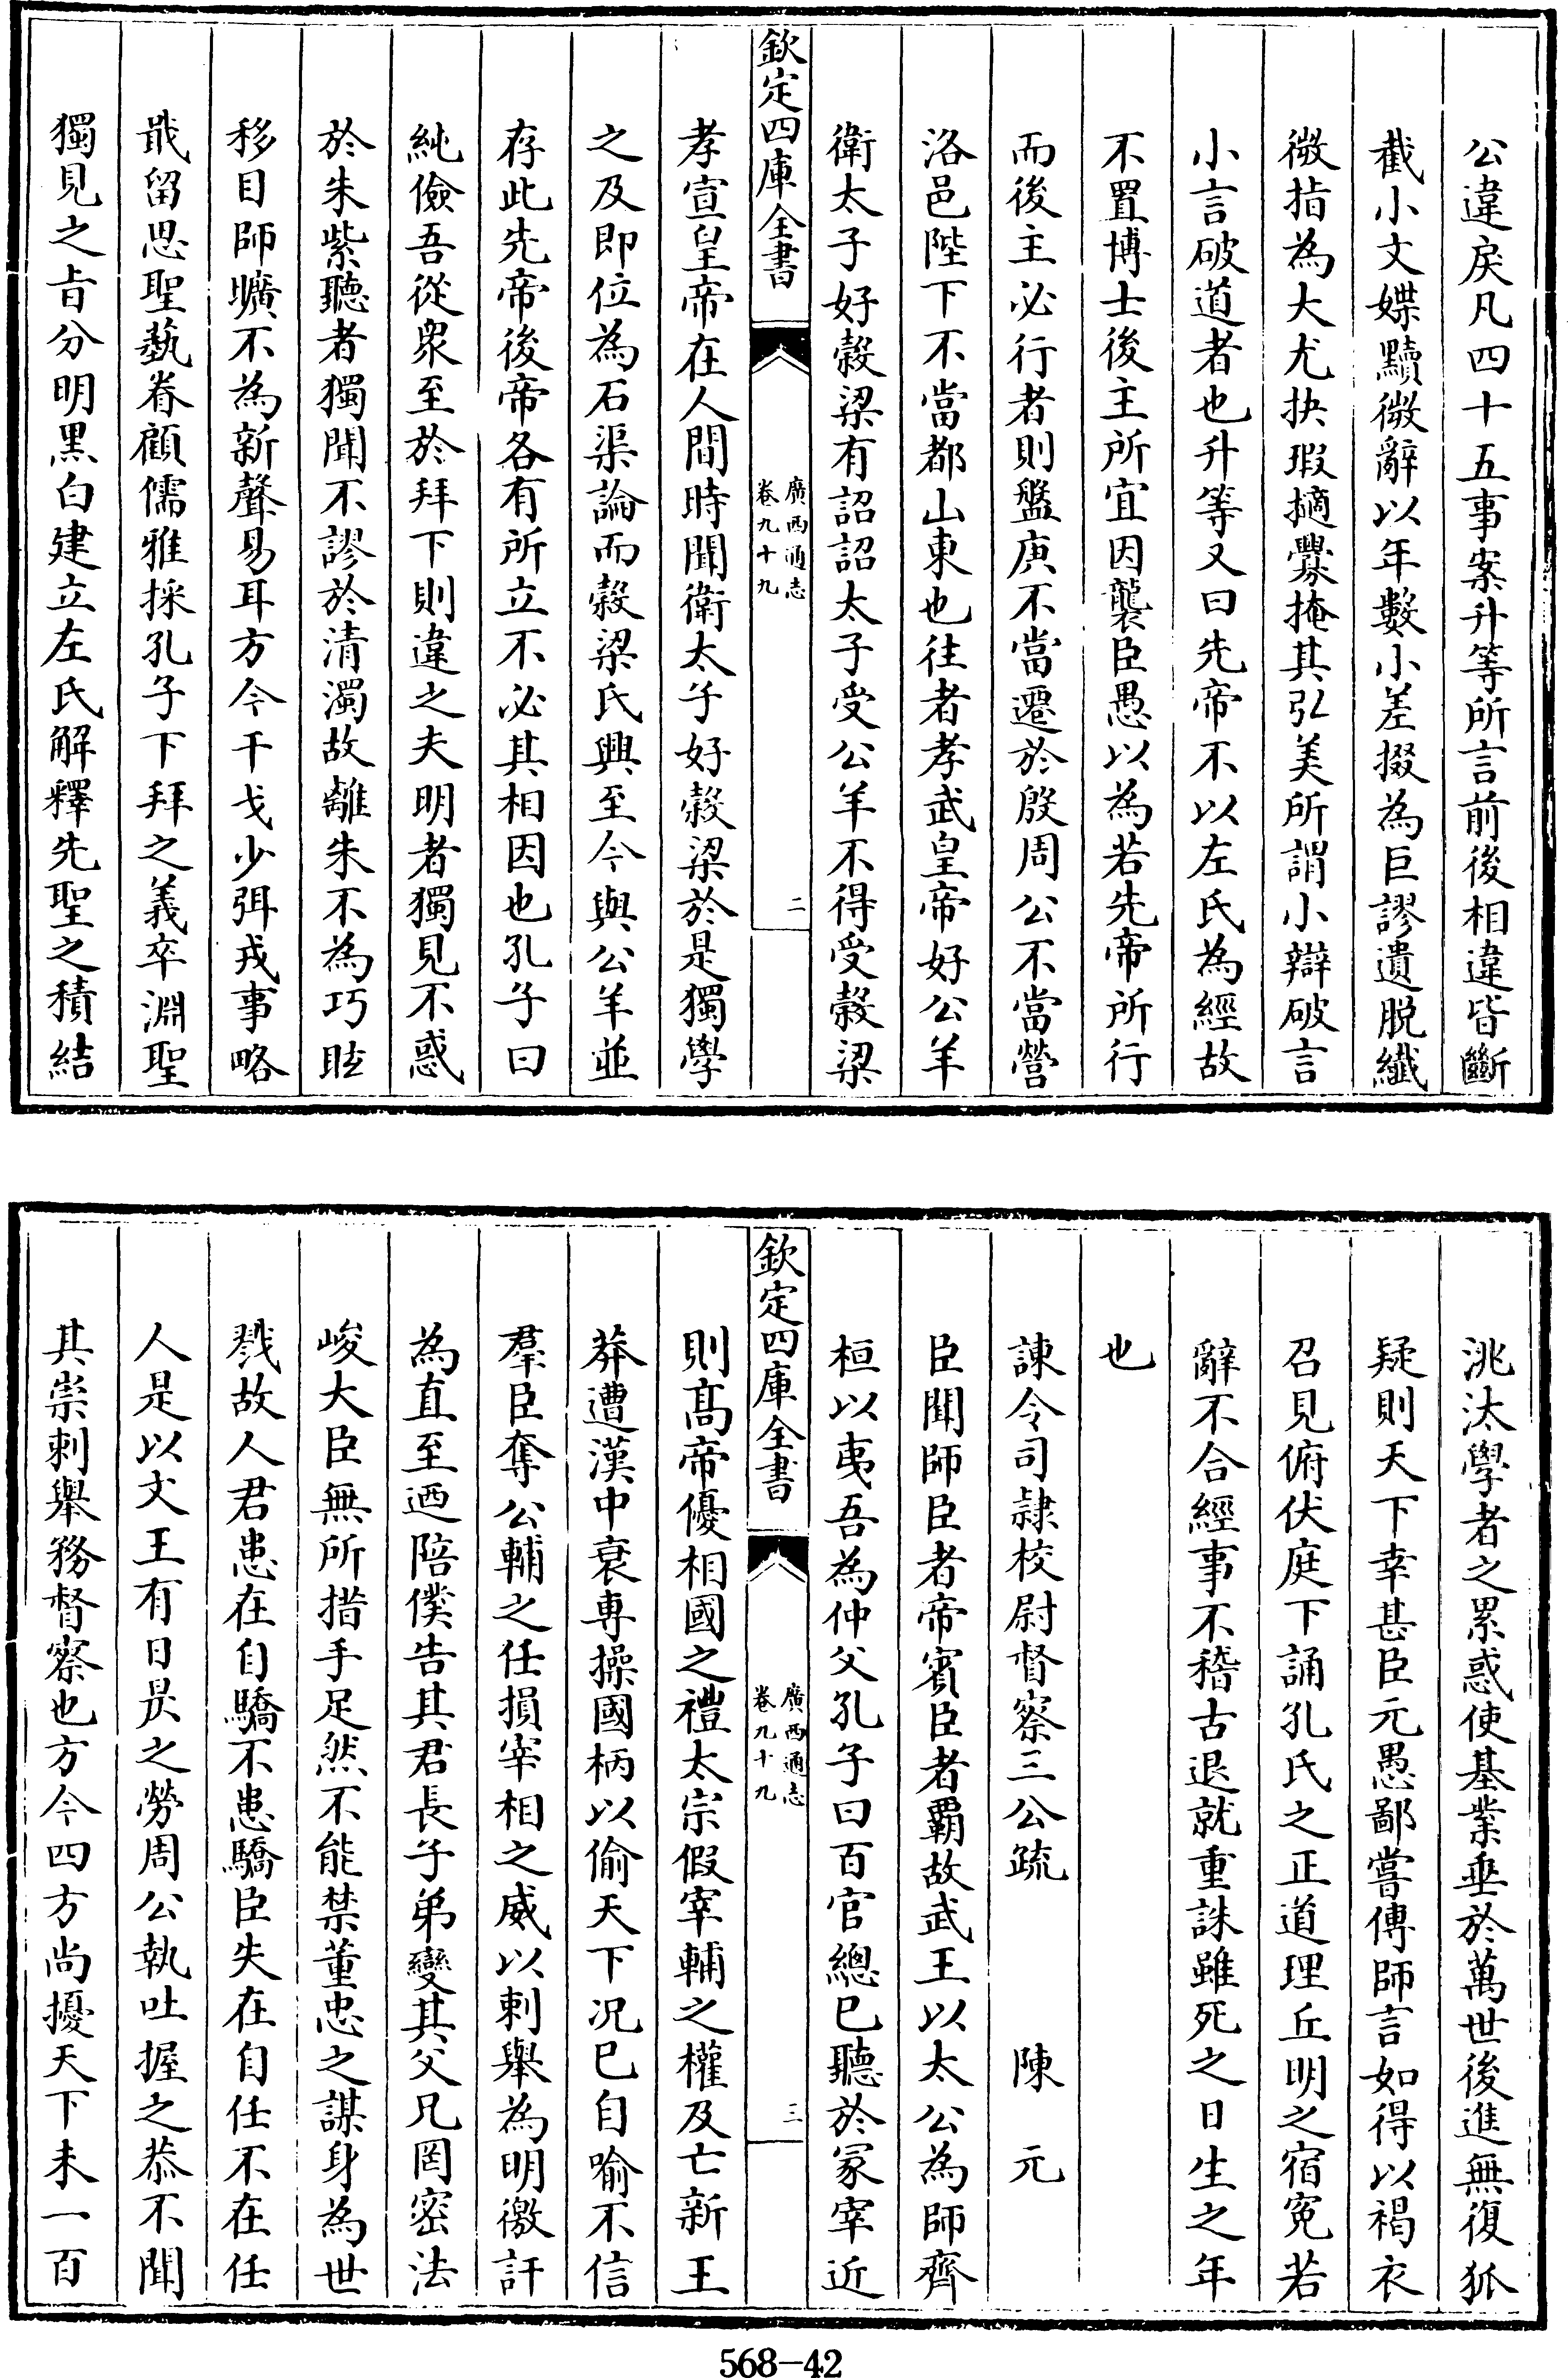 公違戾凡四十五事案升等所言前後相違皆斷
截小文媟黷微辭以年數小差掇為巨謬遺脫纖
微指為大尤抉瑕擿釁掩其弘美所謂小辯破言
小言破道者也升等又曰先帝不以左氏為經故
不置博士後主所宜因襲臣愚以為若先帝所行
而後主必行者則盤庚不當遷於殷周公不當營
洛邑陛下不當都山東也往者孝武皇帝好公羊
衛太子好穀梁有詔詔太子受公羊不得受穀梁
欽定四庫全書
廣西通志
卷九十九
二
孝宣皇帝在人間時聞衛太子好穀梁於是獨學
之及即位為石渠論而穀梁氏興至今與公羊並
存此先帝後帝各有所立不必其相因也孔子曰
純儉吾從衆至於拜下則違之夫明者獨見不惑
於朱紫聽者獨聞不謬於清濁故離朱不為巧眩
移目師曠不為新聲易耳方今干戈少弭戎事略
戢留思聖藝眷顧儒雅採孔子下拜之義卒淵聖
獨見之旨分明黑白建立左氏解釋先聖之積結
洮汰學者之累惑使基業垂於萬世後進無復狐
疑則天下幸甚臣元愚鄙嘗傳師言如得以褐衣
召見俯伏庭下誦孔氏之正道理丘明之宿寃若
辭不合經事不稽古退就重誅雖死之日生之年
也
諫令司隸校尉督察三公疏 陳元
臣聞師臣者帝賓臣者霸故武王以太公為師齊
桓以夷吾為仲父孔子曰百官總已聽於冢宰近
欽定四庫全書
廣西通志
卷九十九
三
則髙帝優相國之禮太宗假宰輔之權及亡新王
莽遭漢中衰専操國柄以偷天下况已自喻不信
羣臣奪公輔之任損宰相之威以刺舉為明徼訐
為直至迺陪僕告其君長子弟變其父兄罔密法
峻大臣無所措手足然不能禁董忠之謀身為世
戮故人君患在自驕不患驕臣失在自任不在任
人是以文王有日昃之勞周公執吐握之恭不聞
其崇刺舉務督察也方今四方尚擾天下未一百
568-42